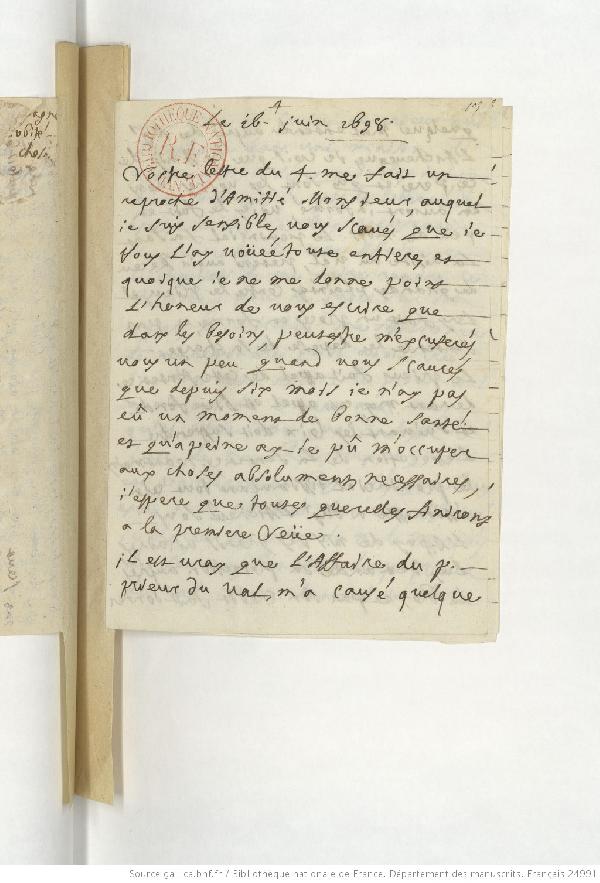 Le 16 juin 1698.
Vostre lettre du 4. me fait un
reproche d'Amitié Monsieur auquel
ie suis sensible, vous scavés que ie
vous l'ay voüeé toute entiere, et
quoique ie ne me donne point
L'honeur de vous escrire que
dans les besoins, peutestre m'excuserés
vous un peu quand vous scaurés
que depuis six mois ie n'ay pas
eû un moment de bonne santé
et qu'apeine ay-ie pû m'occuper
aux choses absolument necessaires,
i'espere que toutes querelles finirons
a la premiere veüe.
il est vray que L'Affaire du p.
prieur du Val, m'a causé quelque
BIBLIOTHEQUE NATIONALE
R.F.
Source gallica.bnf.fr / Bibliothèque nationale de France. Département des manuscrits. Français 24991